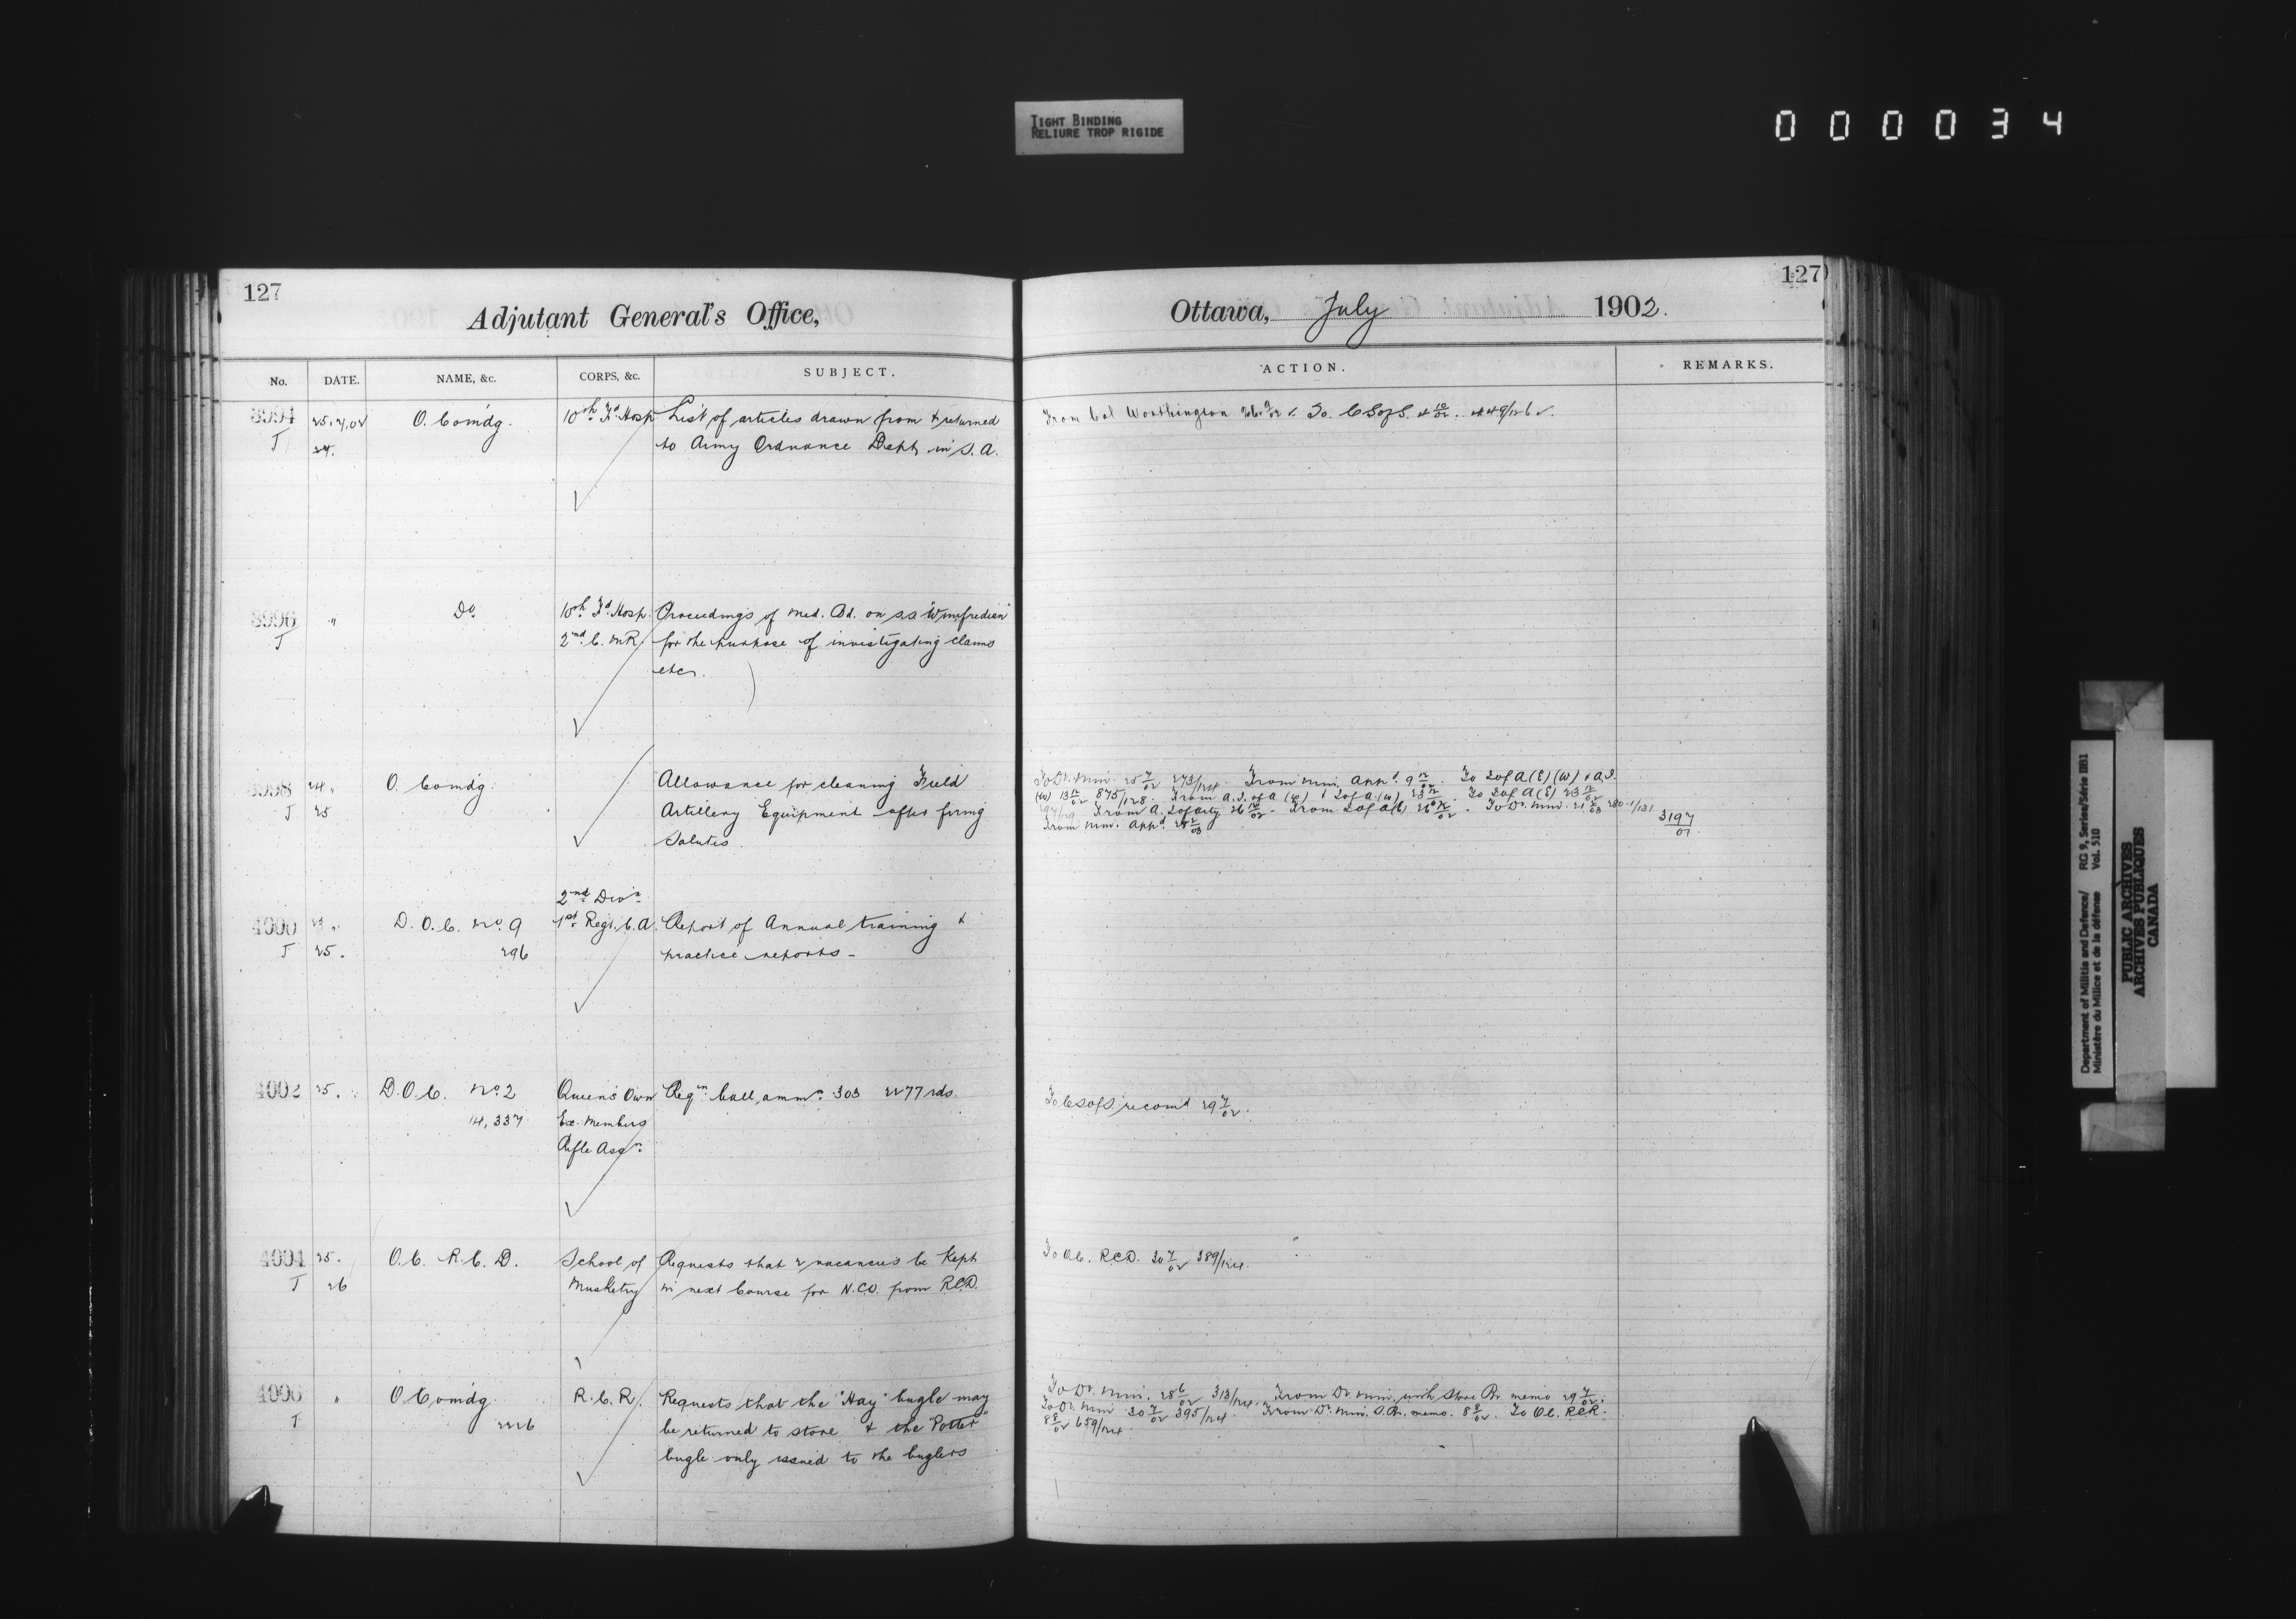 TIGHT BINDING
RELIURE TROP RIGIDE
000034
127
Adjutant General's Office,
No. DATE. NAME, &c. CORPS, &c. SUBJECT.
3994 25.7.02 O. Comdg. 10th Fd. Hosp List of articles drawn from & returned
J 24. to Army Ordnance Dept. in S. A.
3996 " Do. 10th Fd. Hosp. Proceedings of Med. Bd. on s.s. "Winifredian"
J 2nd C. M R. for the purpose of investigating claims
etc.
3998 24 " O. Comdg. Allowance for cleaning Field
J 25 Artillery Equipment after firing
Salutes.
2nd Divn
4000 D. O. C. No. 9 1st Regt. C. A. Report of Annual training &
J 25. 296 practice reports -
4002 25. " D. O. C. No. 2 Queen's Own Reqn ball ammn .303 2277 rds.
14,337 Ex. Members
Rifle Assn.
4004 25. O. C. R. C. D. School of Requests that 2 vacancies be kept
J 26 Musketry in next Course for N.C.O. from R.C.D.
4006 " O. Comdg. R. C. R. Requests that the "Hay" bugle may
J 2226 be returned to store & the "Potter"
bugle only issued to the buglers
127
Ottawa, July 1902.
ACTION. REMARKS.
From Col Worthington To. C S of S. 4 10/02. 449/126
To Dr. Min. 25 7/02 273/124. From Min. appd. 9 12/02. To S of A (E) (W) & A.I.
(W) 13 12/02 875/128. From A. I. of A (W) & S of A (W) 23 12/02 To S of A (E) 23 12/02
From S of A (E) 26 12/02. To Dr. Min. 21 2/03
From Min. appd. 28 2/03 3197/01
To C S of S. recomd 29 7/02.
To O.C. R.C.D. 30 7/02 389/124.
To Dr. Min. 28 6/02 313/124. From Dr Min. with Store Br. memo 29 7/02.
To Dr. Min 30 7/02 395/124. From Dr. Min. S. Br. memo. 8 8/02. To O.C. R.C.R.
8 8/02 659/124
Department of Militia and Defence/ RG 9, Series/Série IIB1
Ministère du Milice et de la défense Vol. 510
PUBLIC ARCHIVES
ARCHIVES PUBLIQUES
CANADA